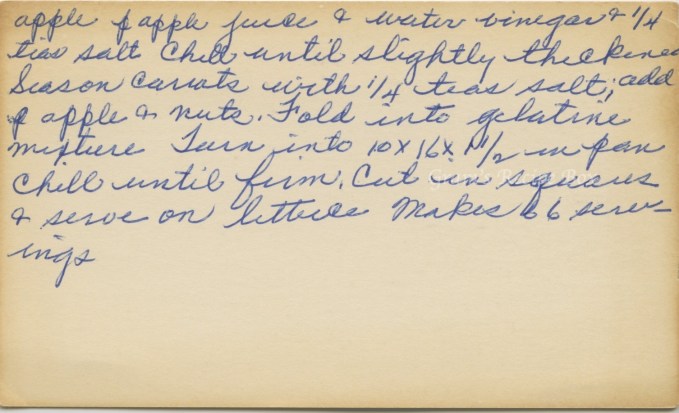 apple p apple juice & water vinegar & 1/4
teas salt Chill until slightly thickened
Season carrots with 1/4 teas salt; add
p apple & nuts. Fold into gelatine
mixture Turn into 10 x 16 x 1 1/2 in pan
Chill until firm. Cut in squares
& serve on lettuce Makes 66 serv-
ings